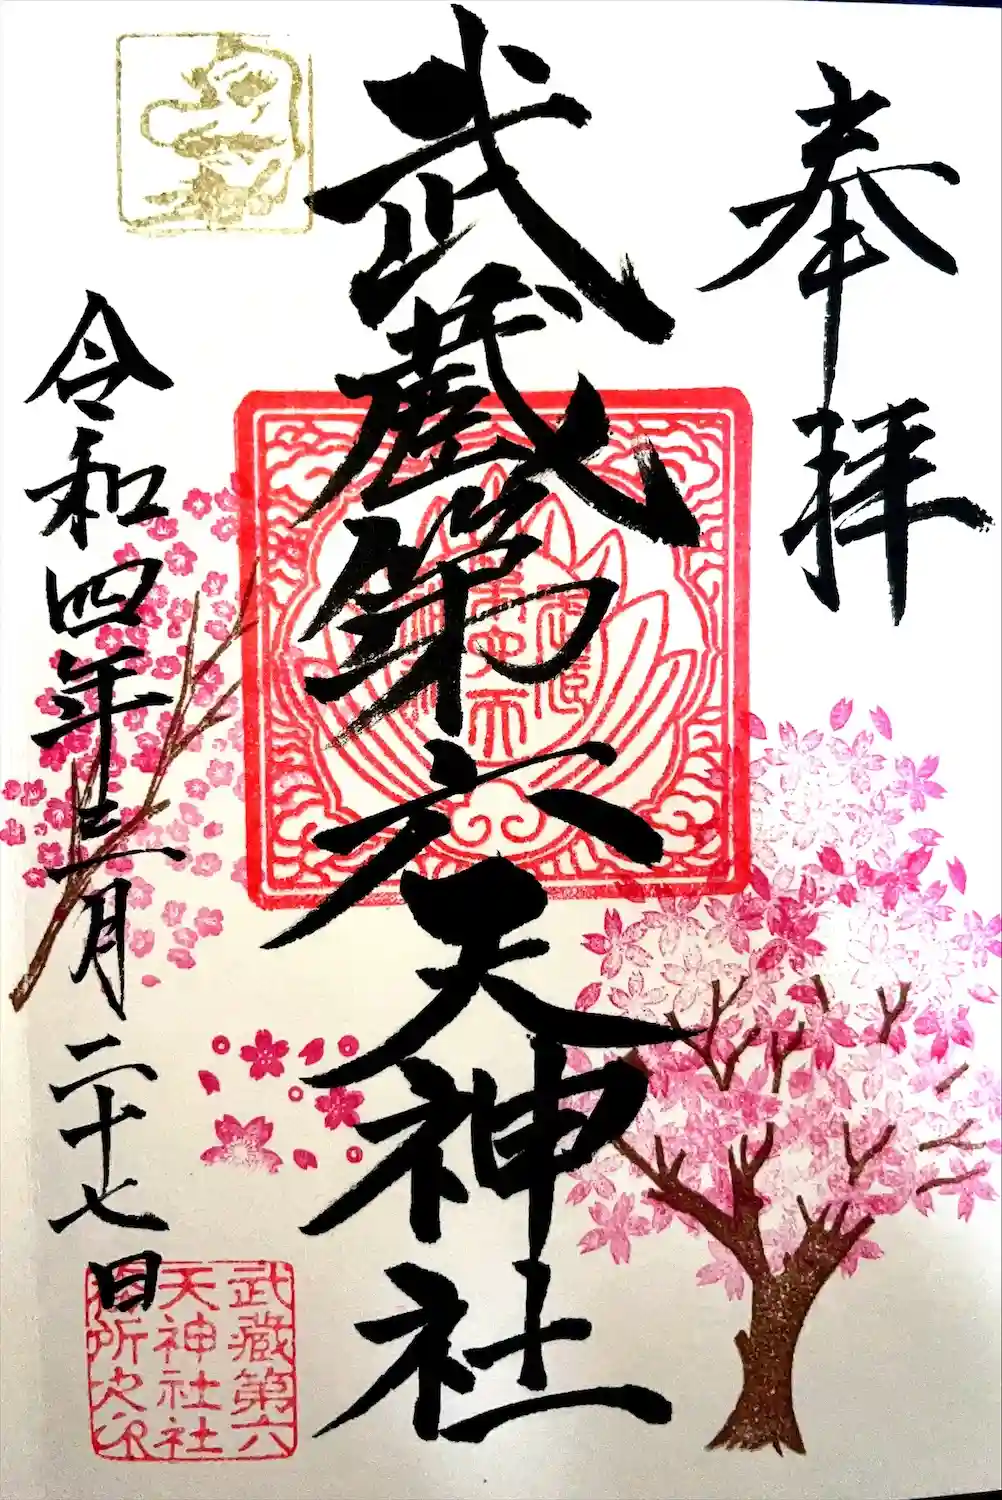 奉拝
武蔵第六天神社
令和四年三月二十七日
武蔵第六
天神社社
務所之印